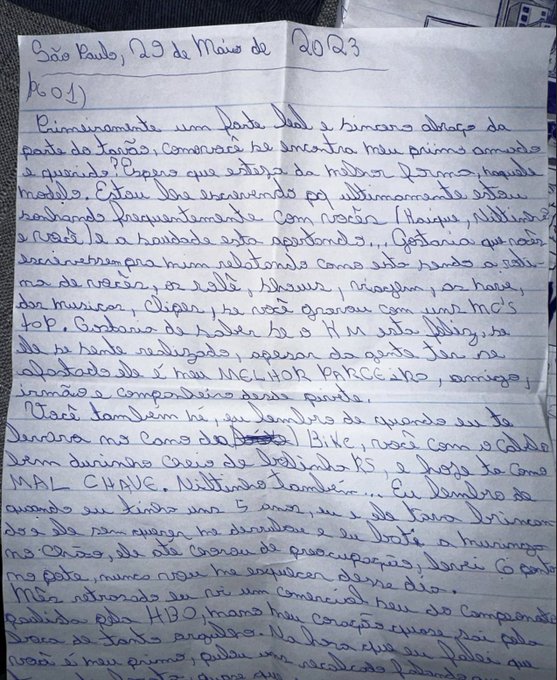 São Paulo, 29 de Maio de 2023
Pg 01)
Primeiramente um forte leal e sincero abraço da
parte do tavão, como você se encontra meu primo amado
e querido? Espero que esteja da melhor forma, naquele
modelo. Estou lhe escrevendo pq ultimamente estou
sonhando frequentemente com vocês (Kaique, Niltinho
e você) e a saudade esta apertando... Gostaria que vocês
escrevessem pra mim relatando como esta sendo a roti-
na de vocês, os rolê, shows, viagem, as rave,
das musicas, clipes, se você gravou com uns MC's
top. Gostaria de saber se o KM esta feliz, se
ele se sente realizado, apesar da gente ter se
afastado ele é meu MELHOR PARCEIRO, amigo,
irmão e companheiro desde pivete.
Você também né, eu lembro de quando eu te
levava no cano da BiKe, você com o cabelo
bem durinho cheio de bolinha KS, e hoje ta como
MAL CHAVE. Niltinho também... Eu lembro de
quando eu tinha uns 5 anos, eu e ele tava brincan
do e ele sem querer me derrubou e eu bati a muringa
no chão, ele até chorou de preocupação, levei 6 ponto
no pote, nunca vou me esquecer desse dia.
Mês retrasado eu vi um comercial seu do campeonato
paulista pela HBO, mano meu coração quase sai pela
boca de tanto orgulho. Na hora que eu falei que
você é meu primo, pulou uns recalcado falando que